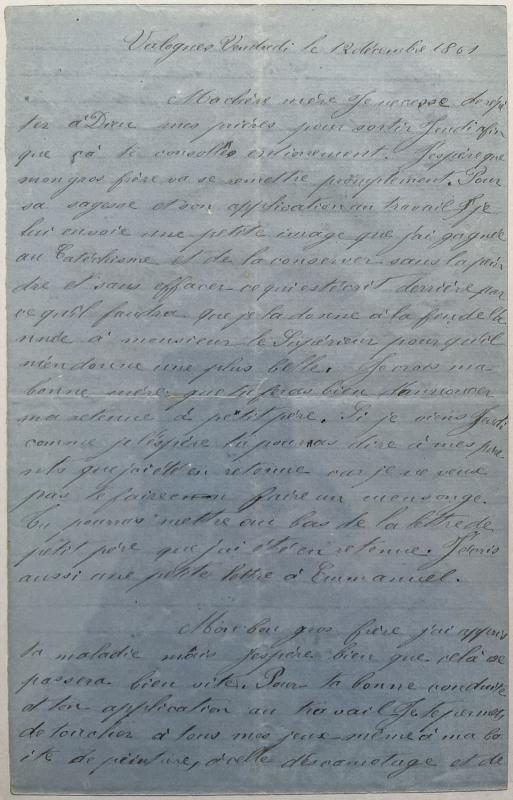 Valognes Vendredi le 12 décembre 1861
Ma chère mère Je ne cesse de répé
ter à Dieu mes prières pour sortir Jeudi afin
que çà te console entièrement. J'espère que
mon gros frère va se remettre promptement. Pour
sa sagesse et son application au travail je
lui envoie une petite image que j'ai gagnée
au Catéchisme et de la conserver sans la pein
dre et sans effacer ce qui est écrit derrière par
ce qu'il faudra que je la donne à la fin de l'a
nnée à monsieur le Supérieur pour qu'il
m'en donne une plus belle. Je crois ma
bonne mère que tu feras bien d'annoncer
ma retenue à petit père. Si je viens Jeudi
comme je l'espère tu pourras dire à mes pare
nts que j'ai été en retenue car je ne veux
pas te faire faire un mensonge.
Tu pourras mettre au bas de la lettre de
petit père que j'ai été en retenue. J'écris
aussi une petite lettre à Emmanuel.
Mon bon gros frère j'ai appris
ta maladie mais j'espère bien que celà se
passera bien vite. Pour ta bonne conduite
et ton application au travail Je te permets
de toucher à tous mes jeux même à ma bo
ite de peinture, à celle d'escamotage et de